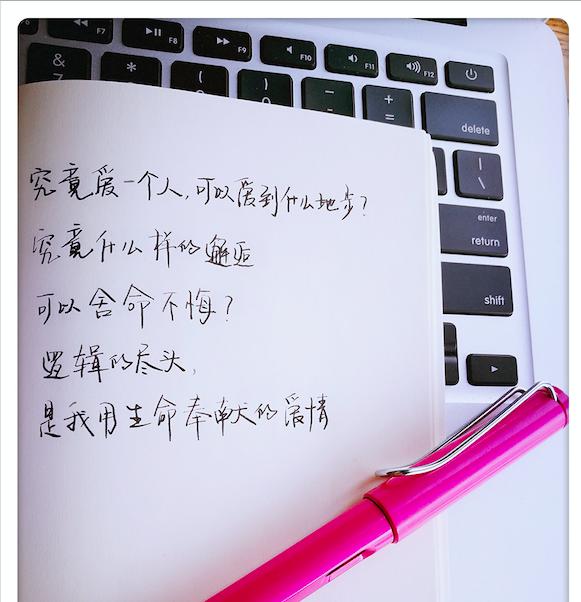 F7 F8 F9 F10 F11 F12
& 7 * ( ) - + =
delete
| \
enter
return
shift
究竟爱一个人,可以爱到什么地步?
究竟什么样的邂逅
可以舍命不悔?
逻辑的尽头,
是我用生命奉献的爱情